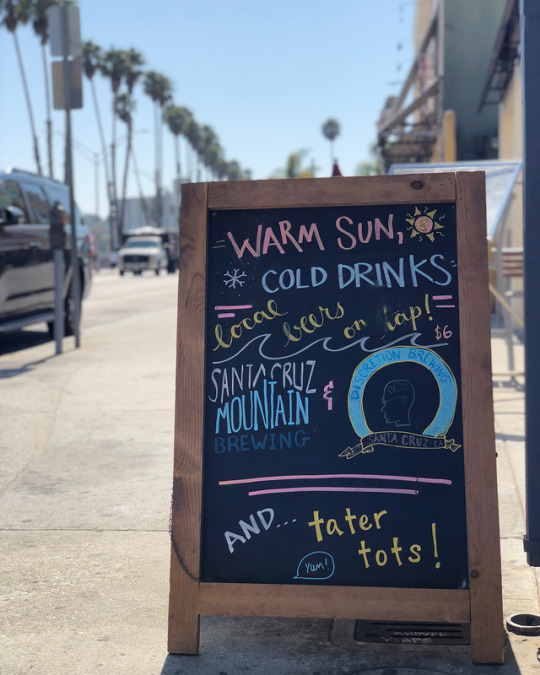 WARM SUN,
COLD DRINKS
local beers on tap!
$6
SANTA CRUZ
MOUNTAIN
BREWING
&
DISCRETION BREWING
SANTA CRUZ, CA
AND...
tater
tots!
YUM!